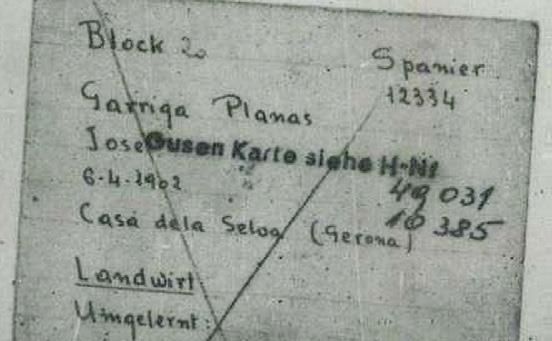 Block 20
Spanier
12334
Garriga Planas
Jose
Gusen Karte siehe H-Nr
6-4-1902
49 031
10 385
Casa dela Selva (Gerona)
Landwirt
Umgelernt: